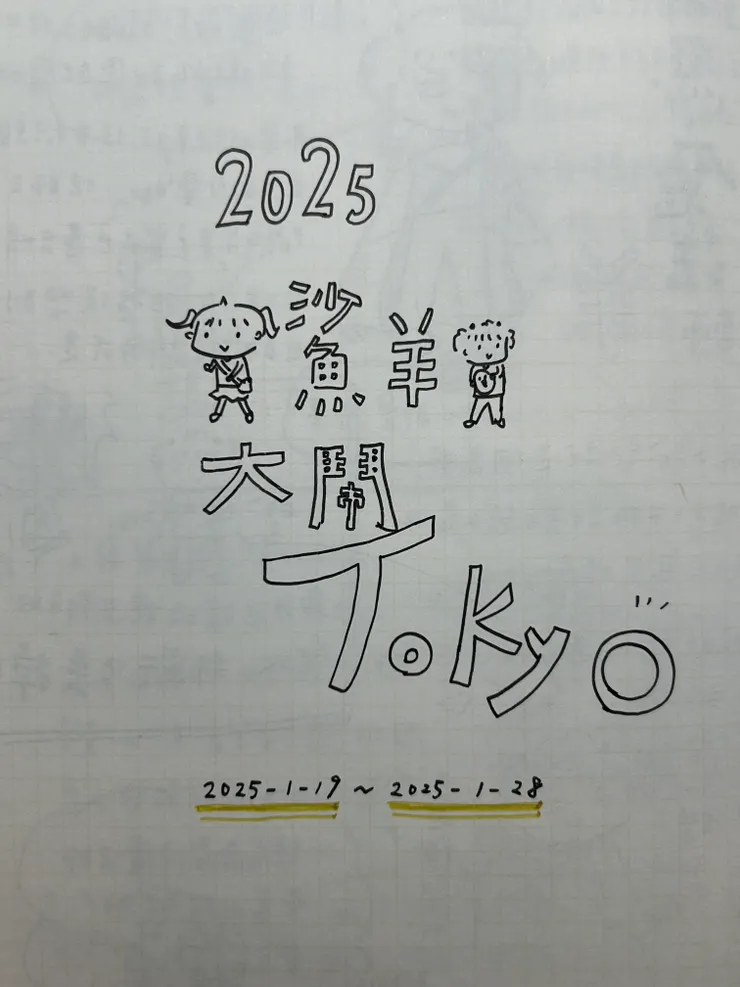 2025
鯊羊
大鬧
Tokyo
2025-1-19 ~ 2025-1-28